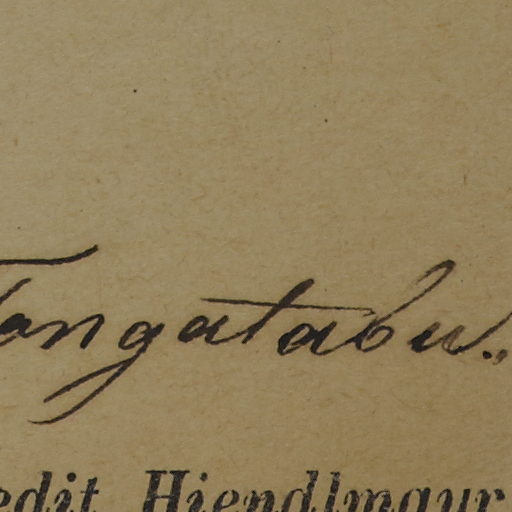 Tongatabu.
edit Hiendlmayr